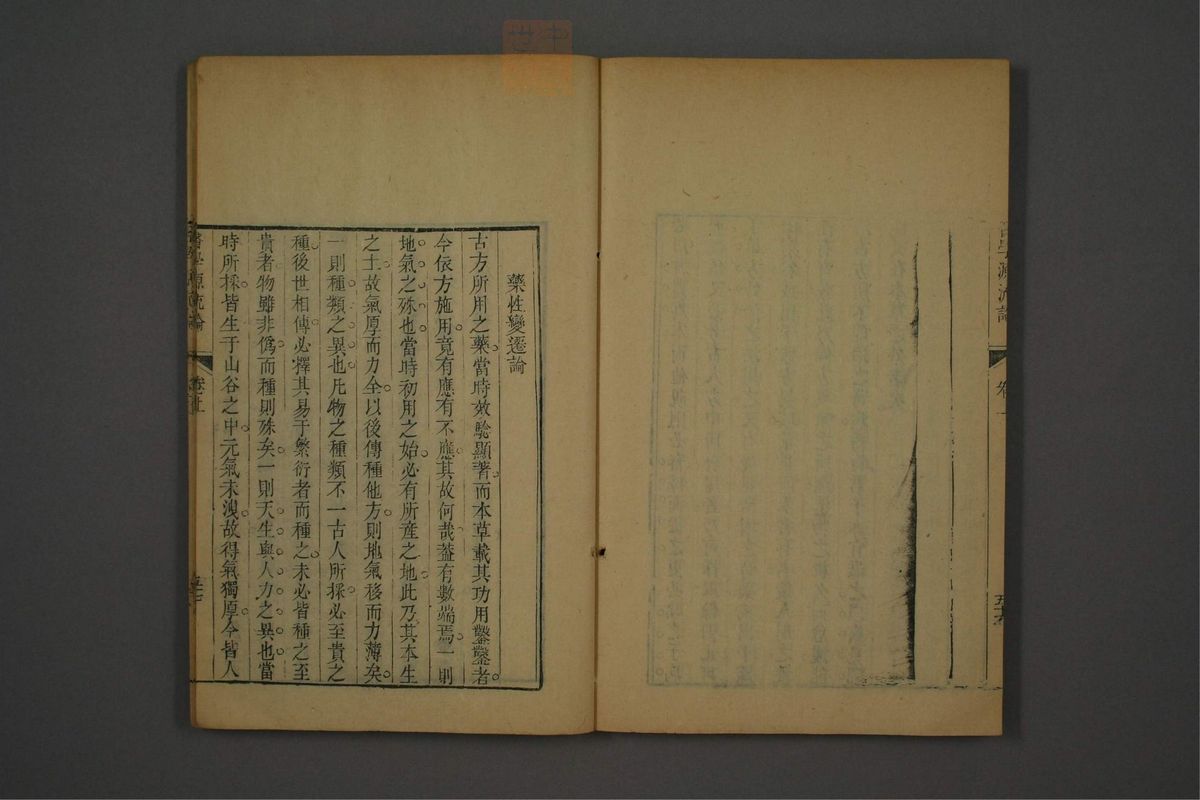 藥性變遷論
古方所用之藥當時效驗顯著而本草載其功用鑿鑿者
今依方施用竟有應有不應其故何哉蓋有數端焉一則
地氣之殊也當時初用之始必有所產之地此乃其本生
之土故氣厚而力全以後傳種他方則地氣移而力薄矣
一則種類之異也凡物之種類不一古人所採必至貴之
種後世相傳必擇其易于繁衍者而種之未必皆種之至
貴者物雖非僞而種則殊矣一則天生與人力之異也當
時所採皆生于山谷之中元氣未洩故得氣獨厚今皆人
醫學源流論
卷上